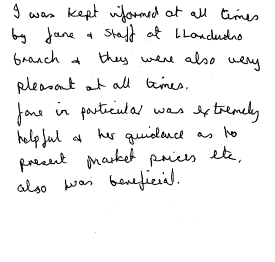 I was kept informed at all times
by Jane & Staff at Llandudno
branch & they were also very
pleasant at all times.
Jane in particular was extremely
helpful & her guidance as to
present market prices etc,
also was beneficial.